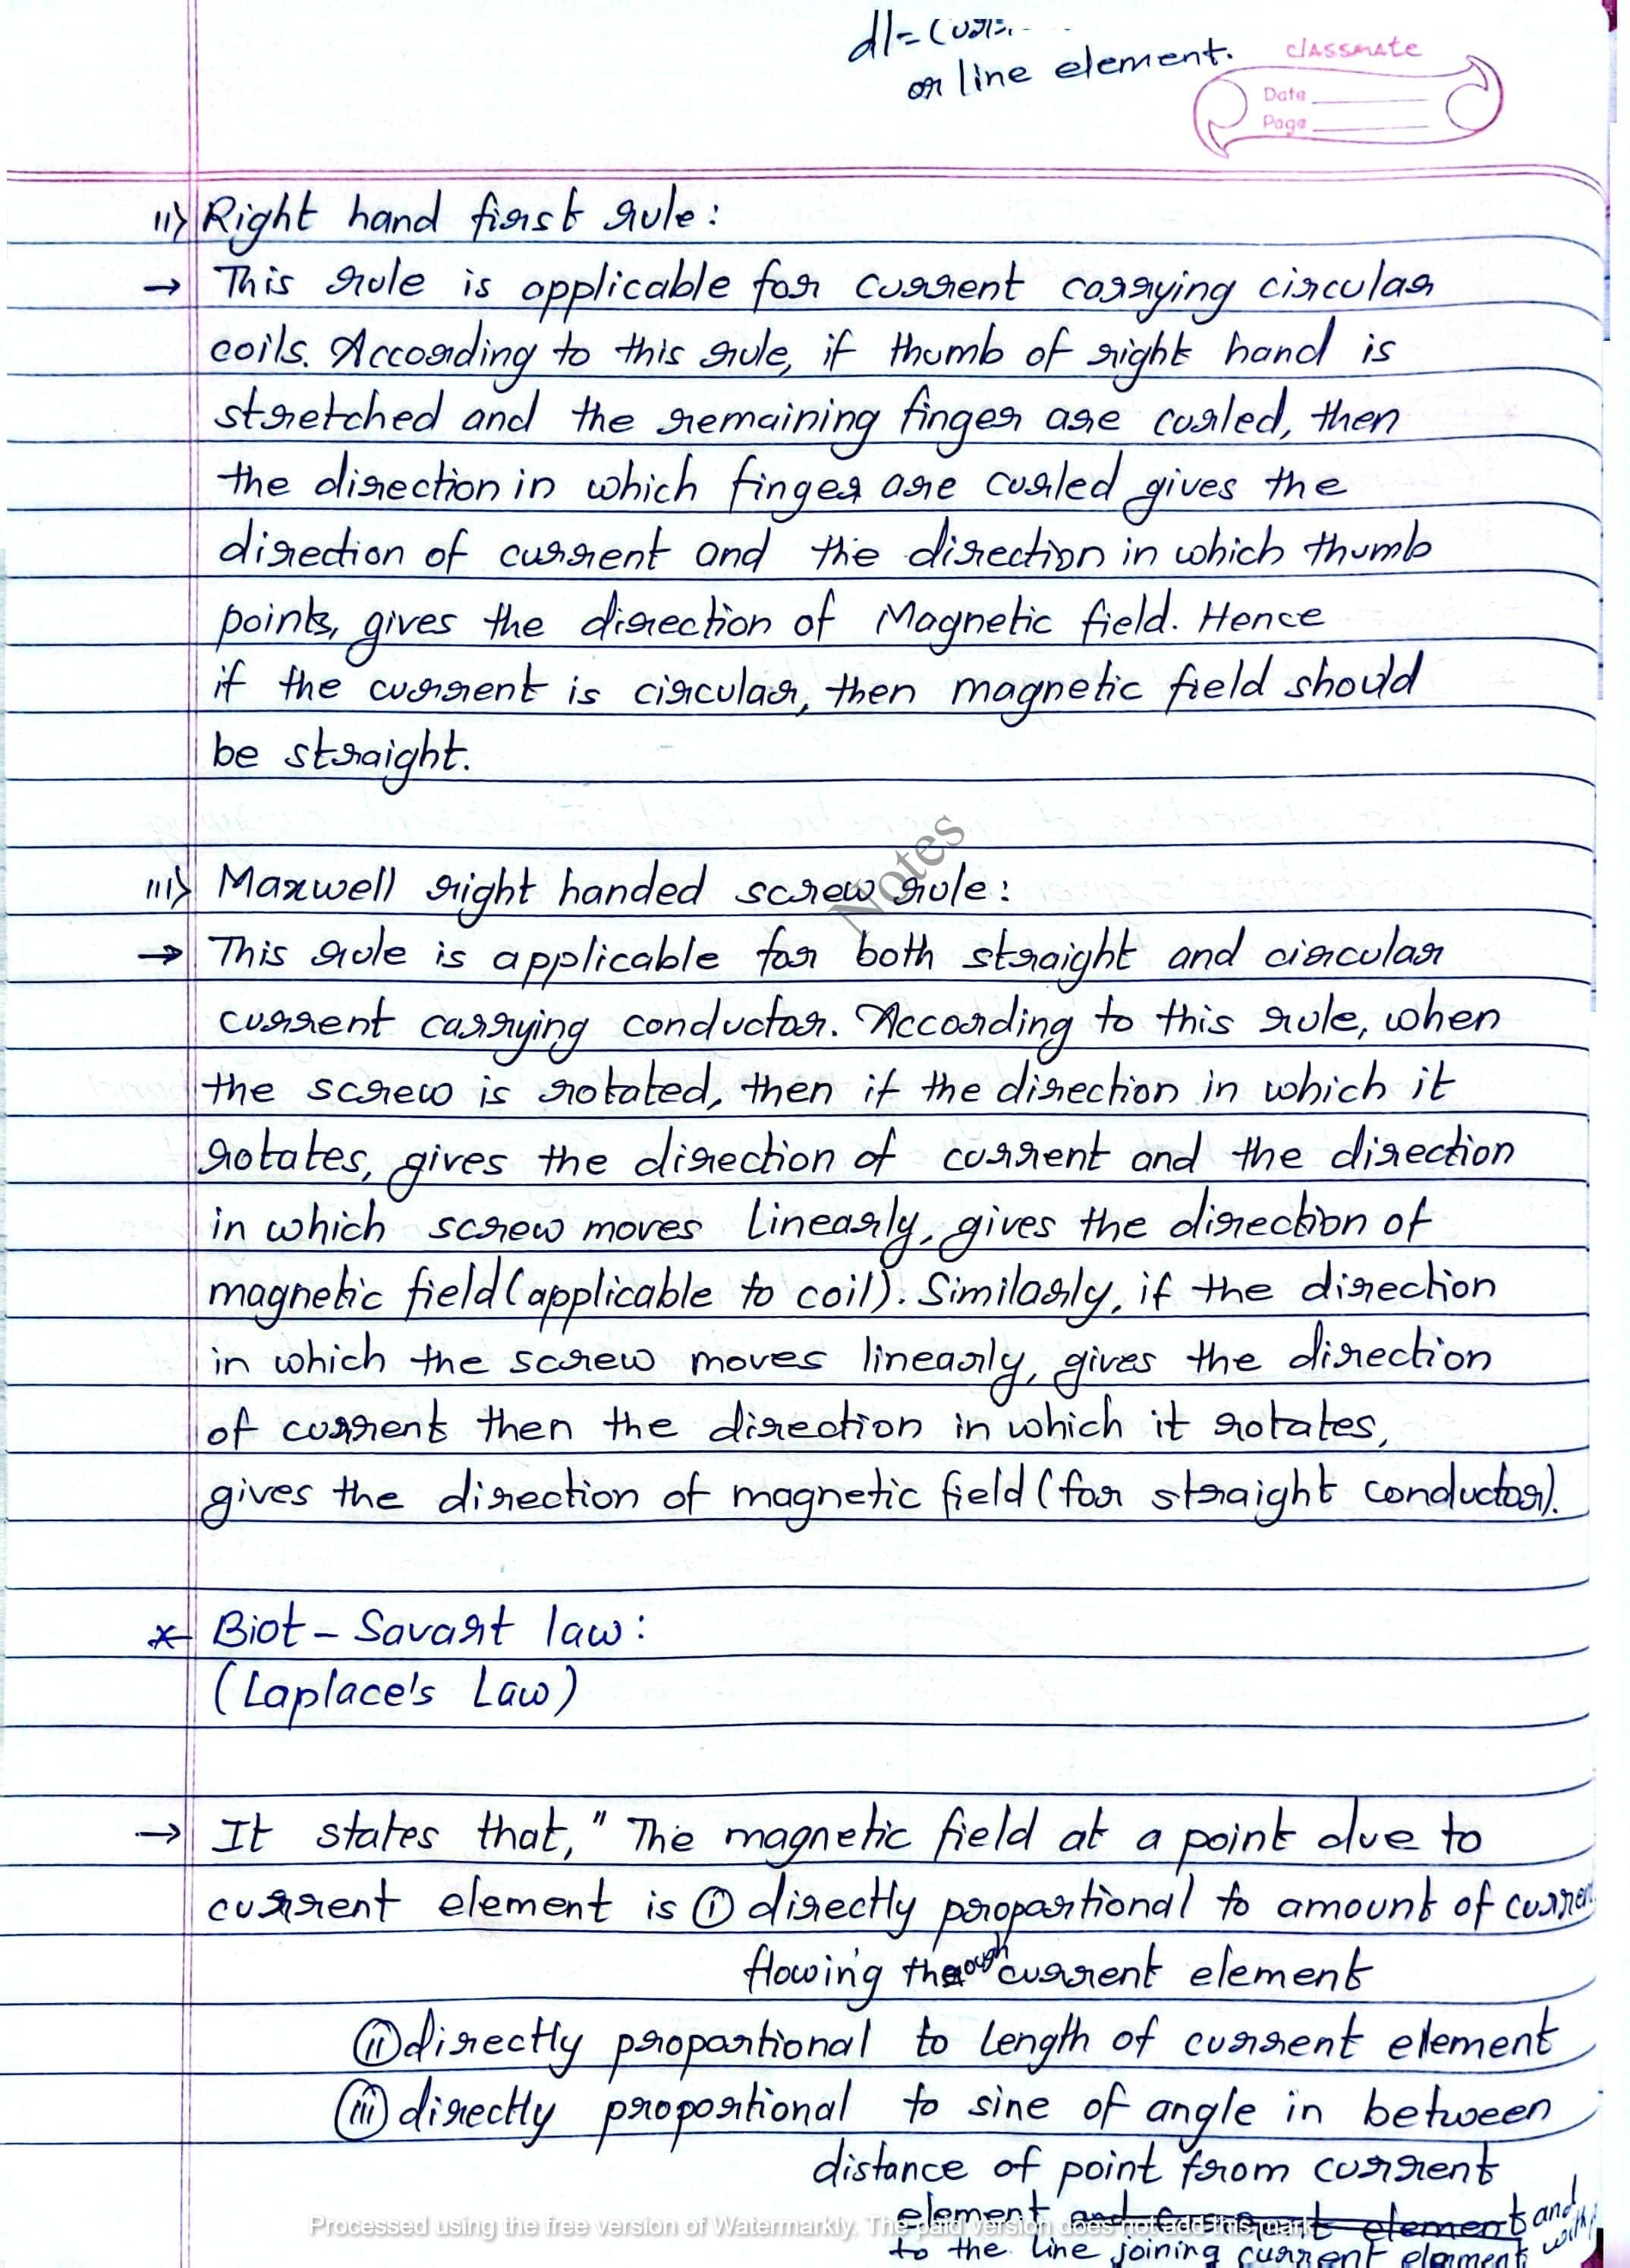 dl=
or line element.
classmate
Date
Page
ii) Right hand first rule:
→ This rule is applicable for current carrying circular
coils. According to this rule, if thumb of right hand is
stretched and the remaining finger are curled, then
the direction in which finger are curled gives the
direction of current and the direction in which thumb
points, gives the direction of Magnetic field. Hence
if the current is circular, then magnetic field should
be straight.
Notes
iii) Maxwell right handed screw rule:
→ This rule is applicable for both straight and circular
current carrying conductor. According to this rule, when
the screw is rotated, then if the direction in which it
rotates, gives the direction of current and the direction
in which screw moves linearly, gives the direction of
magnetic field (applicable to coil). Similarly, if the direction
in which the screw moves linearly, gives the direction
of current then the direction in which it rotates,
gives the direction of magnetic field (for straight conductor).
* Biot - Savart law:
(Laplace's Law)
→ It states that, " The magnetic field at a point due to
current element is (i) directly proportional to amount of current
flowing through current element
(ii) directly proportional to length of current element
(iii) directly proportional to sine of angle in between
distance of point from current
element and current element and
to the line joining current element with
Processed using the free version of Watermarkly. The paid version does not add this mark.